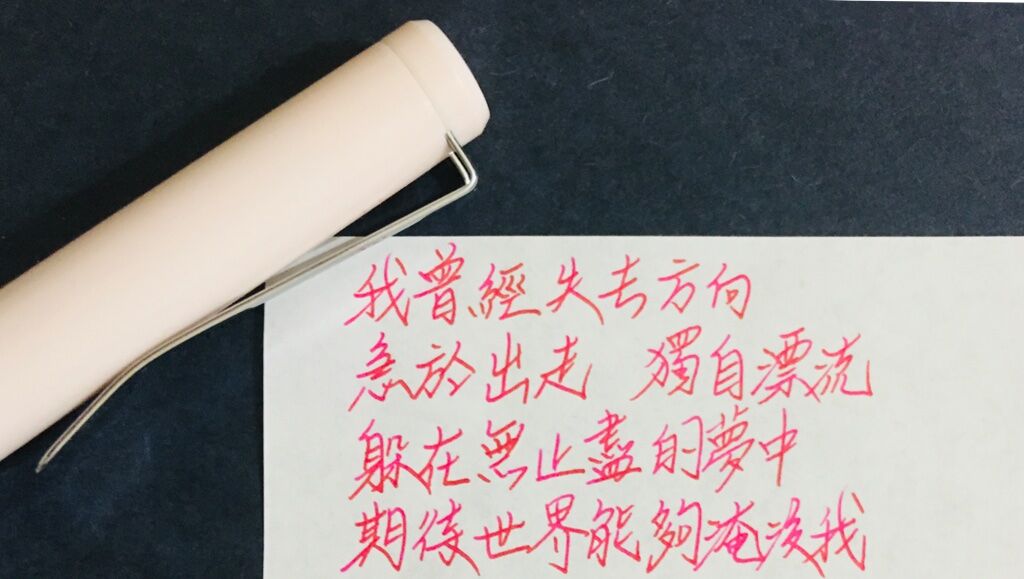 我曾經失去方向
急於出走 獨自漂流
躲在無止盡的夢中
期待世界能夠淹沒我